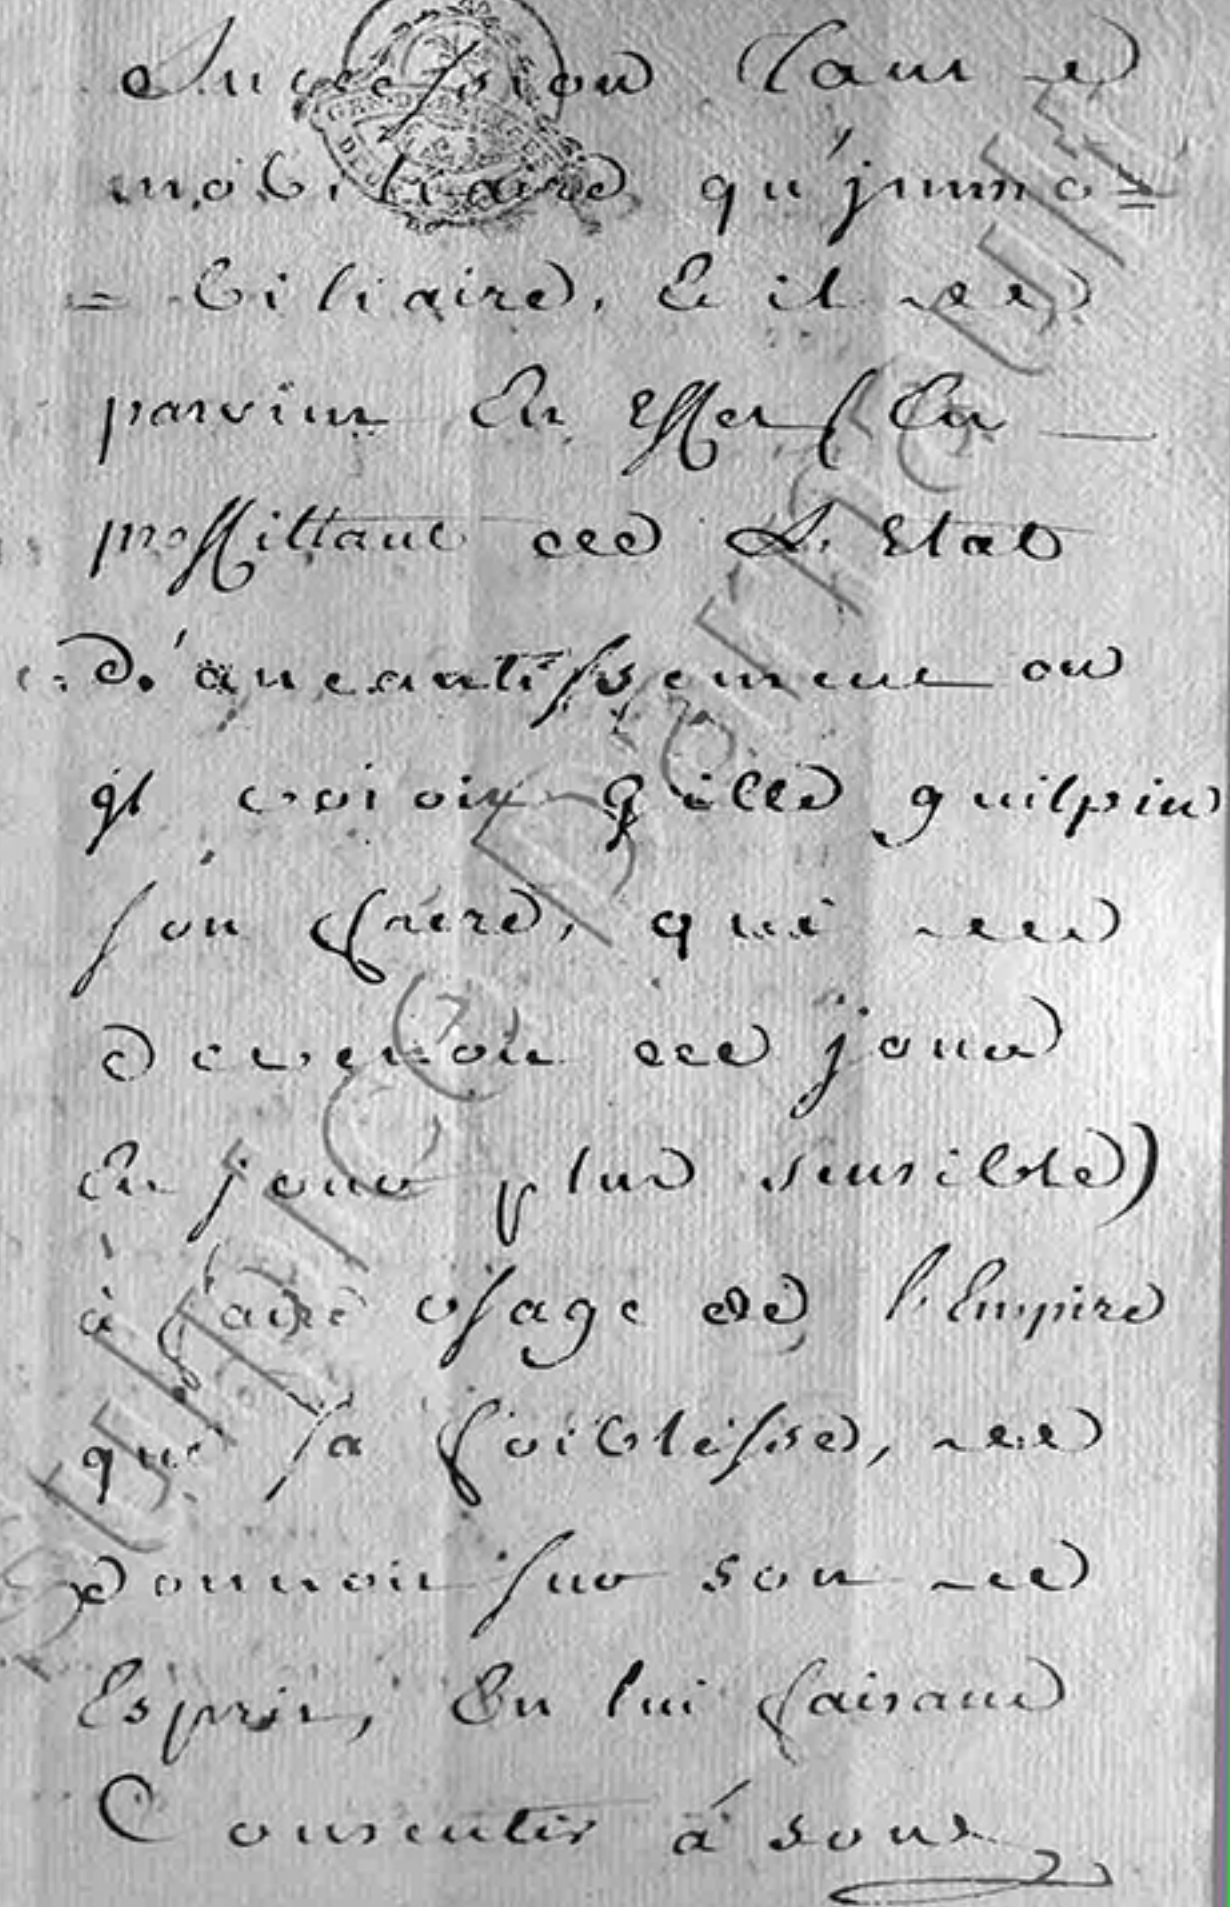 Succession tant
mobiliaire qu'jmmo=
=biliaire. Et il
parvint En effet En
proffittant de L'Etat
D'aneantissement ou
jl voioit gille guilpin
son frere, qui
devenoit de jour
En jour plus sensible)
à faire usage de l'Empire
que sa foiblesse,
donnoit sur son
Esprit, En lui faisant
Consentir à son